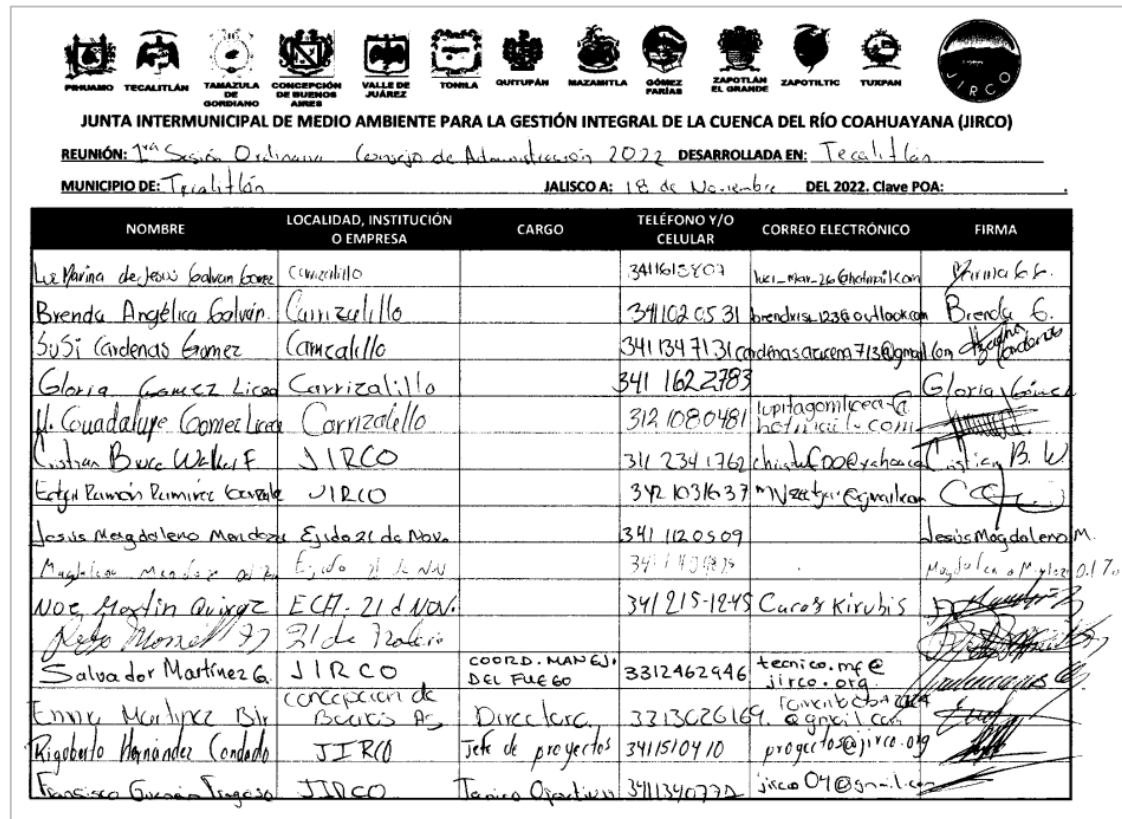 PIHUAMO TECALITLÁN TAMAZULA DE GORDIANO CONCEPCIÓN DE BUENOS AIRES VALLE DE JUÁREZ TONILA QUITUPÁN MAZAMITLA GÓMEZ FARÍAS ZAPOTLÁN EL GRANDE ZAPOTILTIC TUXPAN JIRCO
JUNTA INTERMUNICIPAL DE MEDIO AMBIENTE PARA LA GESTIÓN INTEGRAL DE LA CUENCA DEL RÍO COAHUAYANA (JIRCO)
REUNIÓN: 1ra Sesión Ordinaria Consejo de Administración 2022 DESARROLLADA EN: Tecalitlán
MUNICIPIO DE: Tecalitlán JALISCO A: 18 de Noviembre DEL 2022. Clave POA:
NOMBRE LOCALIDAD, INSTITUCIÓN O EMPRESA CARGO TELÉFONO Y/O CELULAR CORREO ELECTRÓNICO FIRMA
Luz Marina de Jesus Galvan Gomez Carrizalillo
Brenda Angélica Galván. Carrizalillo 341 102 05 31 Brenda G.
Susi Cardenas Gomez Carrizalillo 341 134 71 31 cardenasazucena713@gmail.com
Gloria Gomez Licea Carrizalillo 341 162 2783 Gloria Gómez
Guadalupe Gomez Licea Carrizalillo 312 1080481
Cristian Bruce Walker F JIRCO 311 234 1762 Cristian B. W.
Edgar Ramón Ramirez JIRCO 342 1031637
Jesús Magdaleno Mendoza Ejido 21 de Nov. 341 1120509 Jesús Magdaleno M.
Magdaleno Mendoza Ejido 21 de Nov
Noe Martin Quiroz 21 d NOV. 341 215-12-45
21 de
Salvador Martínez G. JIRCO COORD. MANEJ. DEL FUEGO 3312462946 tecnico.mf@jirco.org
Martinez concepcion de Directora 3313026169
Rigoberto Hernández Condado JIRCO Jefe de proyectos 3411510410 proyectos@jirco.org
Francisco Guzmán Fragoso JIRCO Tecnico Operativo jirco04@gmail.com